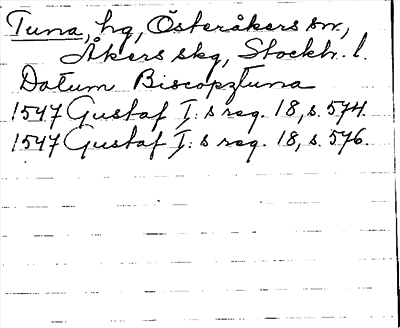 Tuna, hg, Österåkers sn,
Åkers skg, Stockh. l.
Datum Biscopztuna
1547 Gustaf I:s reg. 18, s. 574.
1547 Gustaf I:s reg. 18, s. 576.